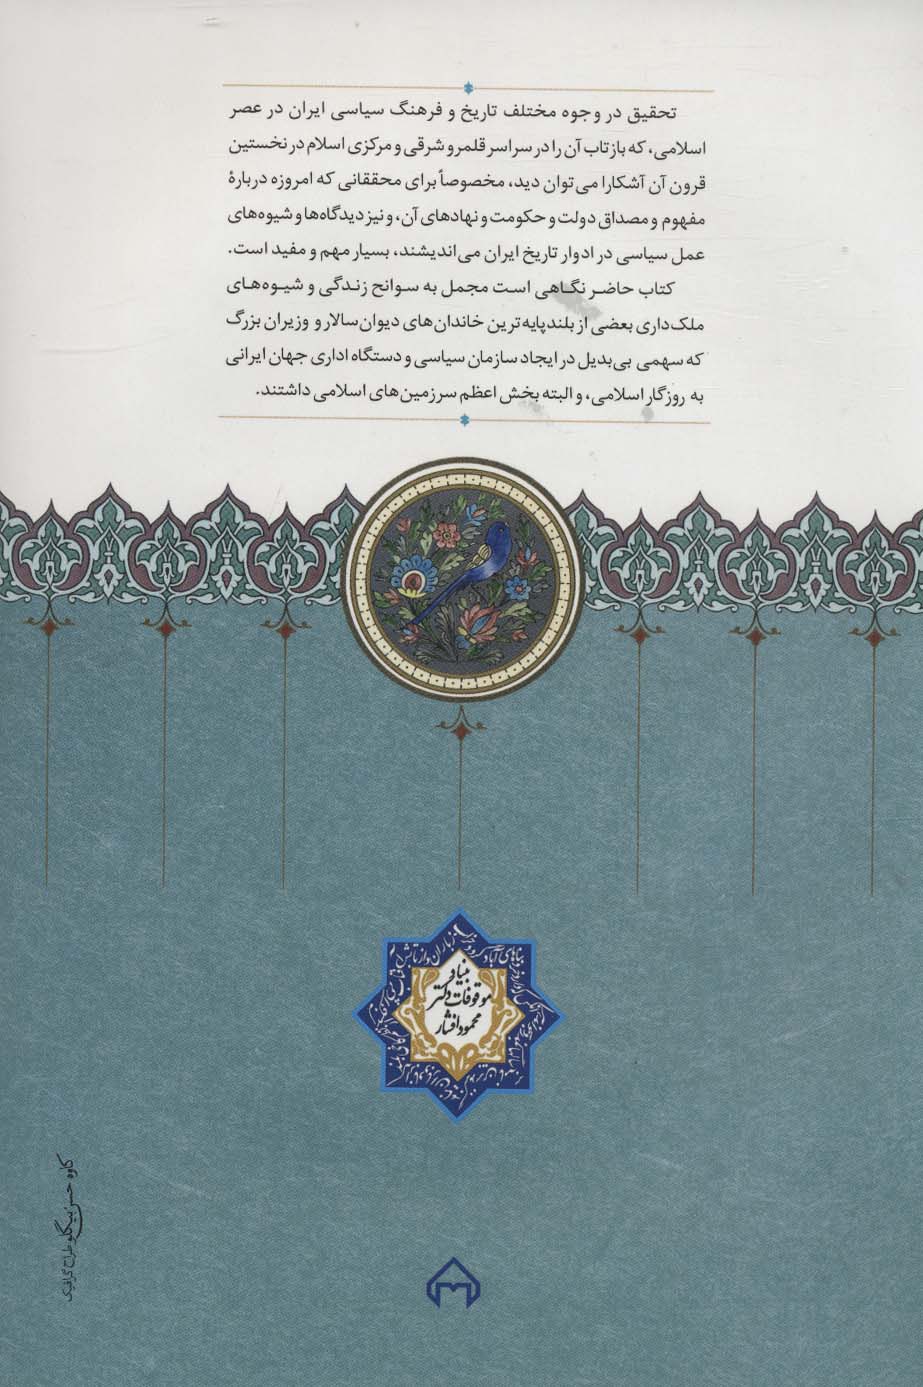 تحقیق در وجوه مختلف تاریخ و فرهنگ سیاسی ایران در عصر
اسلامی، که بازتاب آن را در سراسر قلمرو شرقی و مرکزی اسلام در نخستین
قرون آن آشکارا می‌توان دید، مخصوصاً برای محققانی که امروزه دربارهٔ
مفهوم و مصداق دولت و حکومت و نهادهای آن، و نیز دیدگاه‌ها و شیوه‌های
عمل سیاسی در ادوار تاریخ ایران می‌اندیشند، بسیار مهم و مفید است.
کتاب حاضر نگاهی است مجمل به سوانح زندگی و شیوه‌های
ملک‌داری بعضی از بلندپایه‌ترین خاندان‌های دیوان‌سالار و وزیران بزرگ
که سهمی بی‌بدیل در ایجاد سازمان سیاسی و دستگاه اداری جهان ایرانی
به روزگار اسلامی، و البته بخش اعظم سرزمین‌های اسلامی داشتند.
بنیاد
موقوفات دکتر
محمود افشار
کاوه حسن‌بیگلو طراح گرافیک